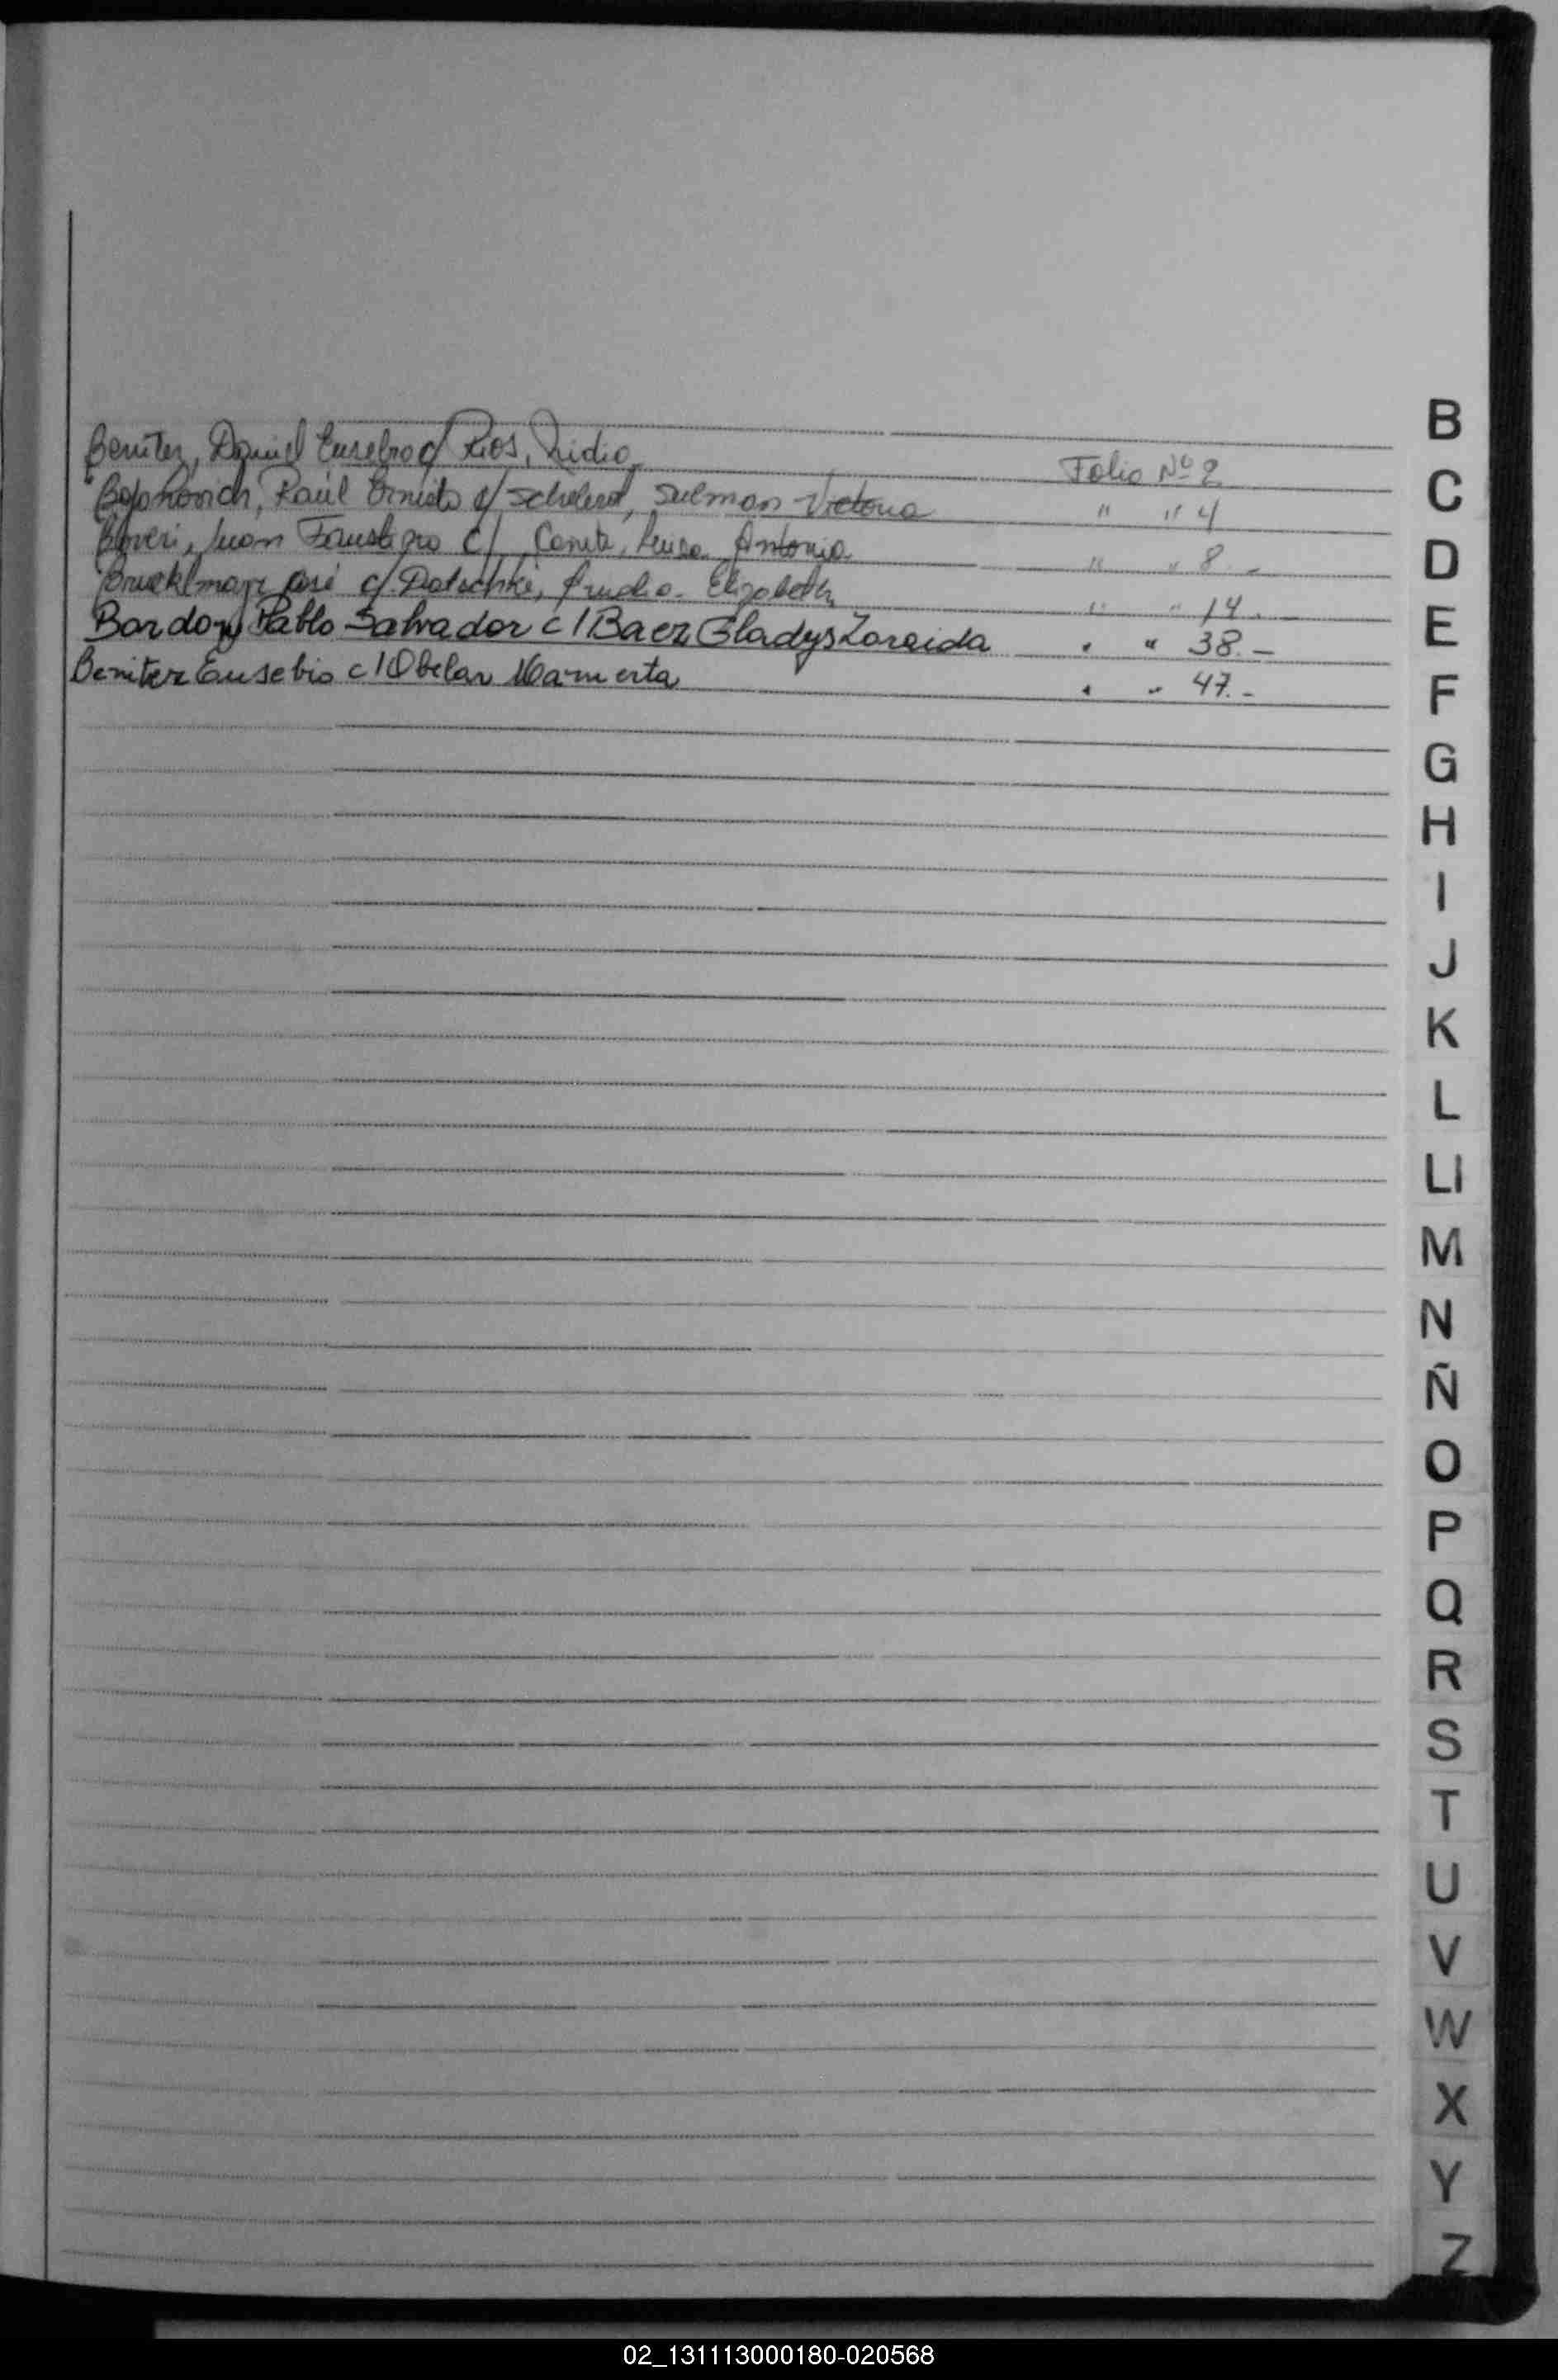 Benitez, Daniel Eusebio c/ Rios, Lidia Folio Nº 2
Raúl Ernesto c/ Sulman Victoria " " 4
Boveri, Juan Faustino c/ Canete, Luisa Antonia " " 8.-
José c/ Datschke, Elizabeth " " 14.
Bordon Pablo Salvador c/ Baez Gladys Zoraida " " 38.-
Benitez Eusebio c/ Obelar Mamerta " " 47.-
B
C
D
E
F
G
H
I
J
K
L
Ll
M
N
Ñ
O
P
Q
R
S
T
U
V
W
X
Y
Z
02_131113000180-020568